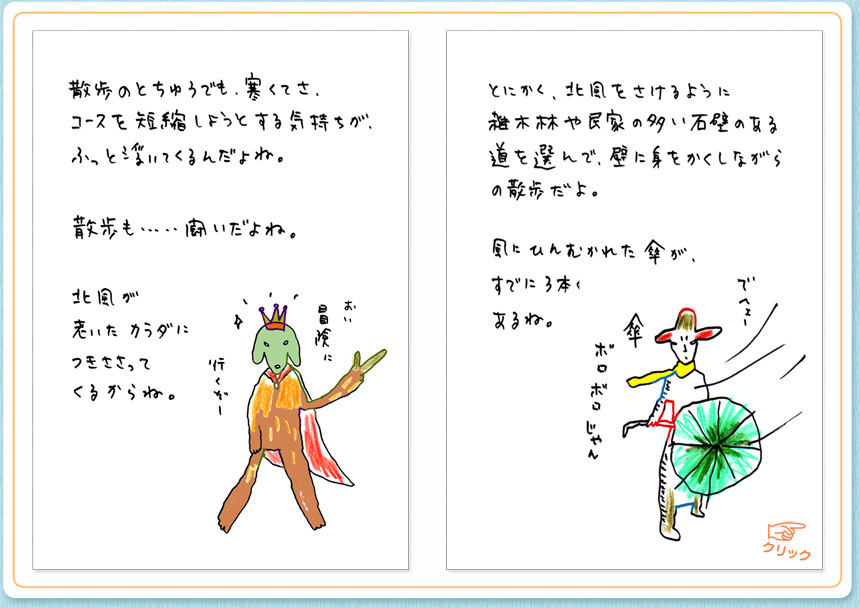 散歩のとちゅうでも、寒くてさ、
コースを短縮しようとする気持ちが、
ふっと浮いてくるんだよね。
散歩も……闘いだよね。
北風が
老いたカラダに
つきささって
くるからね。
おい
冒険に
行くぞー
とにかく、北風をさけるように
雑木林や民家の多い石壁のある
道を選んで、壁に身をかくしながら
の散歩だよ。
風にひんむかれた傘が、
すでに3本く
あるね。
でへェー
傘
ボロボロじゃん
クリック